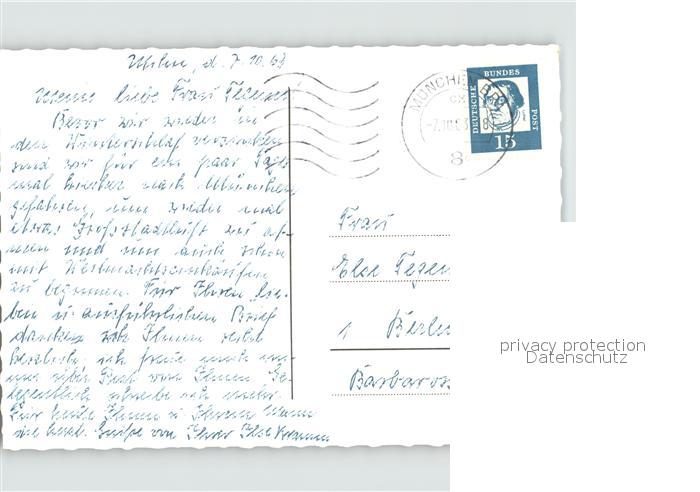 München, d. 7.10.63
Meine liebe Frau Tegener!
Bevor wir wieder in
den Winterschlaf versinken
sind wir für ein paar Tage
mal hierher nach München
gefahren, um wieder mal
etwas Großstadtluft zu at-
men und um auch schon
mit Weihnachtseinkäufen
zu beginnen. Für Ihren lie-
ben u. ausführlichen Brief
danken wir Ihnen recht
herzlich; ich freue mich im-
mer über Post von Ihnen. Ge-
legentlich schreibe ich mehr.
Für heute Ihnen u. Ihrem Mann
viele herzl. Grüße von Ihrer Ilse
MÜNCHEN
8
DEUTSCHE BUNDES POST
15
Frau
Else Tegen
1 Berlin
Barbaros
privacy protection
Datenschutz